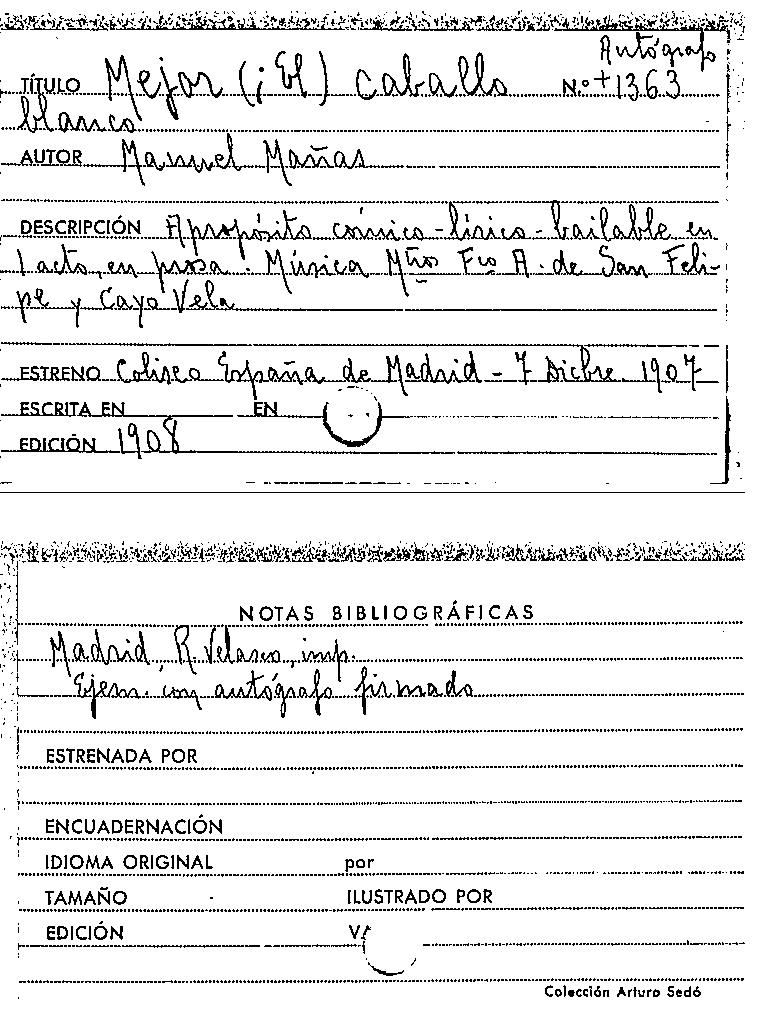 Autógrafo
TÍTULO Mejor (¡El) caballo N.º +1363
blanco
AUTOR Manuel Mañas
DESCRIPCIÓN Apropósito cómico-lírico-bailable en
1 acto, en prosa. Música Mtros Fco A. de San Feli-
pe y Cayo Vela
ESTRENO Coliseo España de Madrid - 7 Dicbre. 1907
ESCRITA EN EN
EDICIÓN 1908
NOTAS BIBLIOGRÁFICAS
Madrid, R. Velasco, imp.
Ejem. con autógrafo firmado
ESTRENADA POR
ENCUADERNACIÓN
IDIOMA ORIGINAL por
TAMAÑO ILUSTRADO POR
EDICIÓN
Colección Arturo Sedó